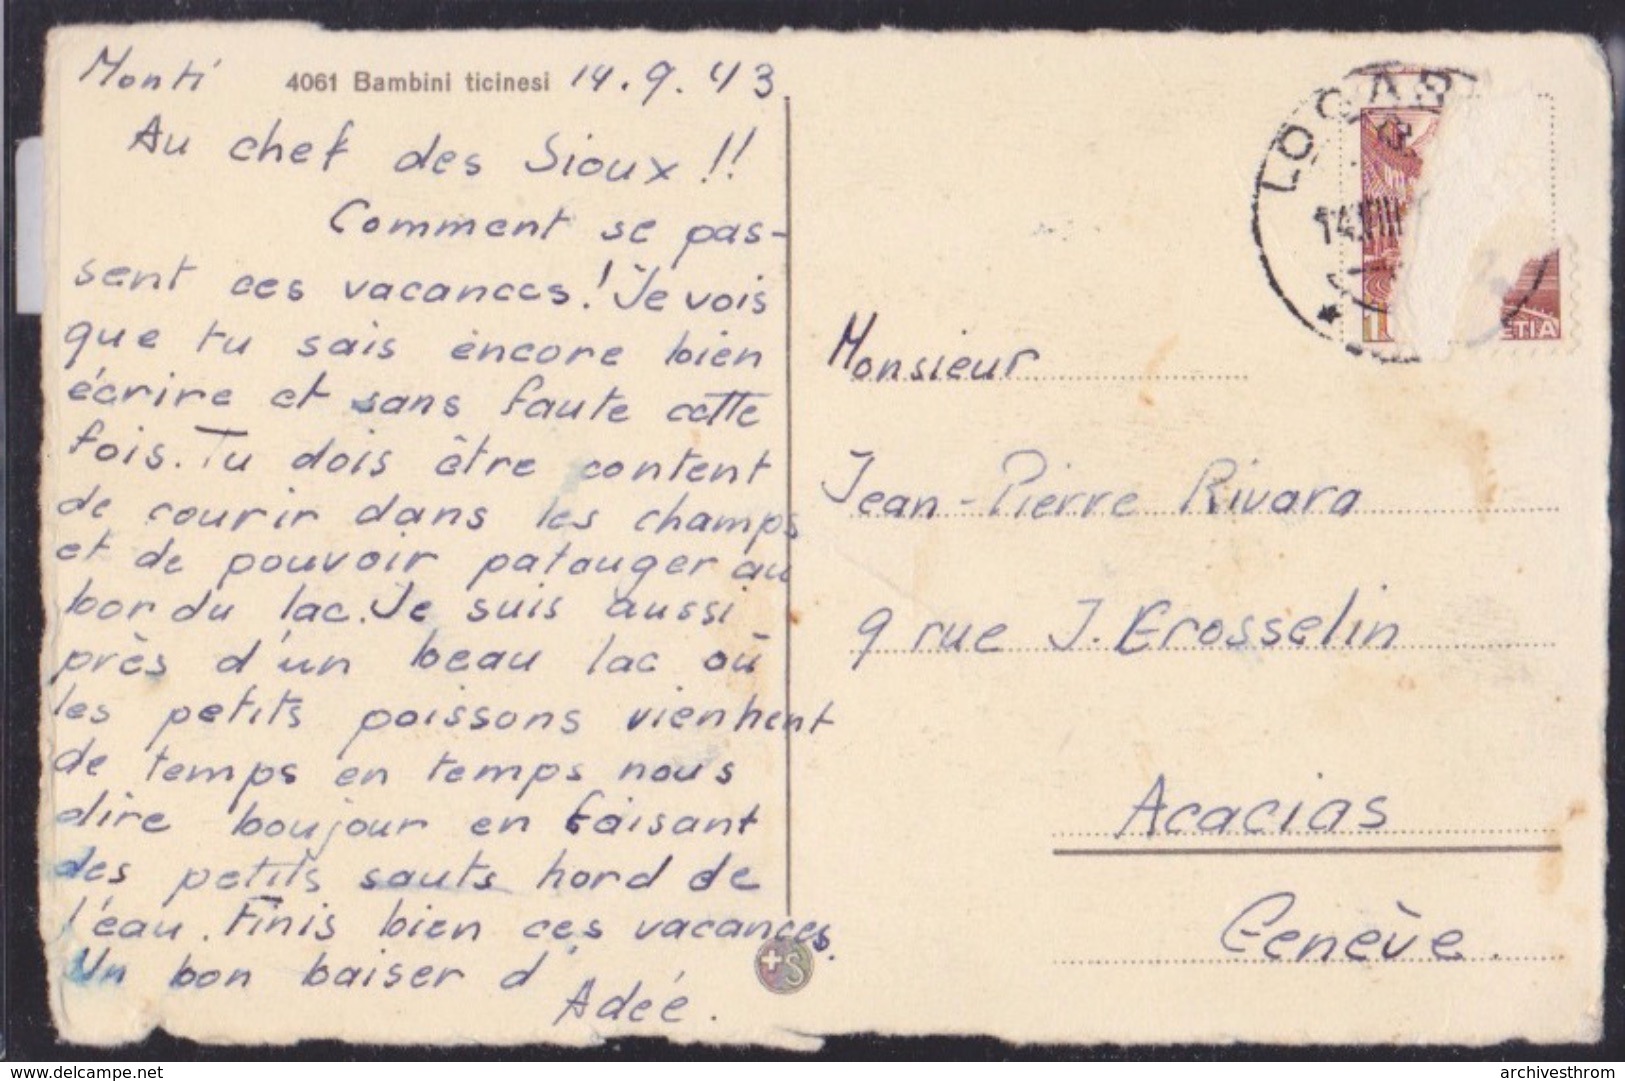 Monti 4061 Bambini ticinesi 14.9.43
Au chef des Sioux !!
Comment se pas-
sent ces vacances! Je vois
que tu sais encore bien
écrire et sans faute cette
fois. Tu dois être content
de courir dans les champs
et de pouvoir patauger au
bor du lac. Je suis aussi
près d'un beau lac où
les petits poissons viennent
de temps en temps nous
dire boujour en faisant
des petits sauts hord de
l'eau. Finis bien ces vacances.
Un bon baiser d'
Adée.
+S
LOCAR
14.VIII
ETIA
Monsieur
Jean-Pierre Rivara
9 rue J. Grosselin
Acacias
Genève.
delcampe.net
archivesthrom